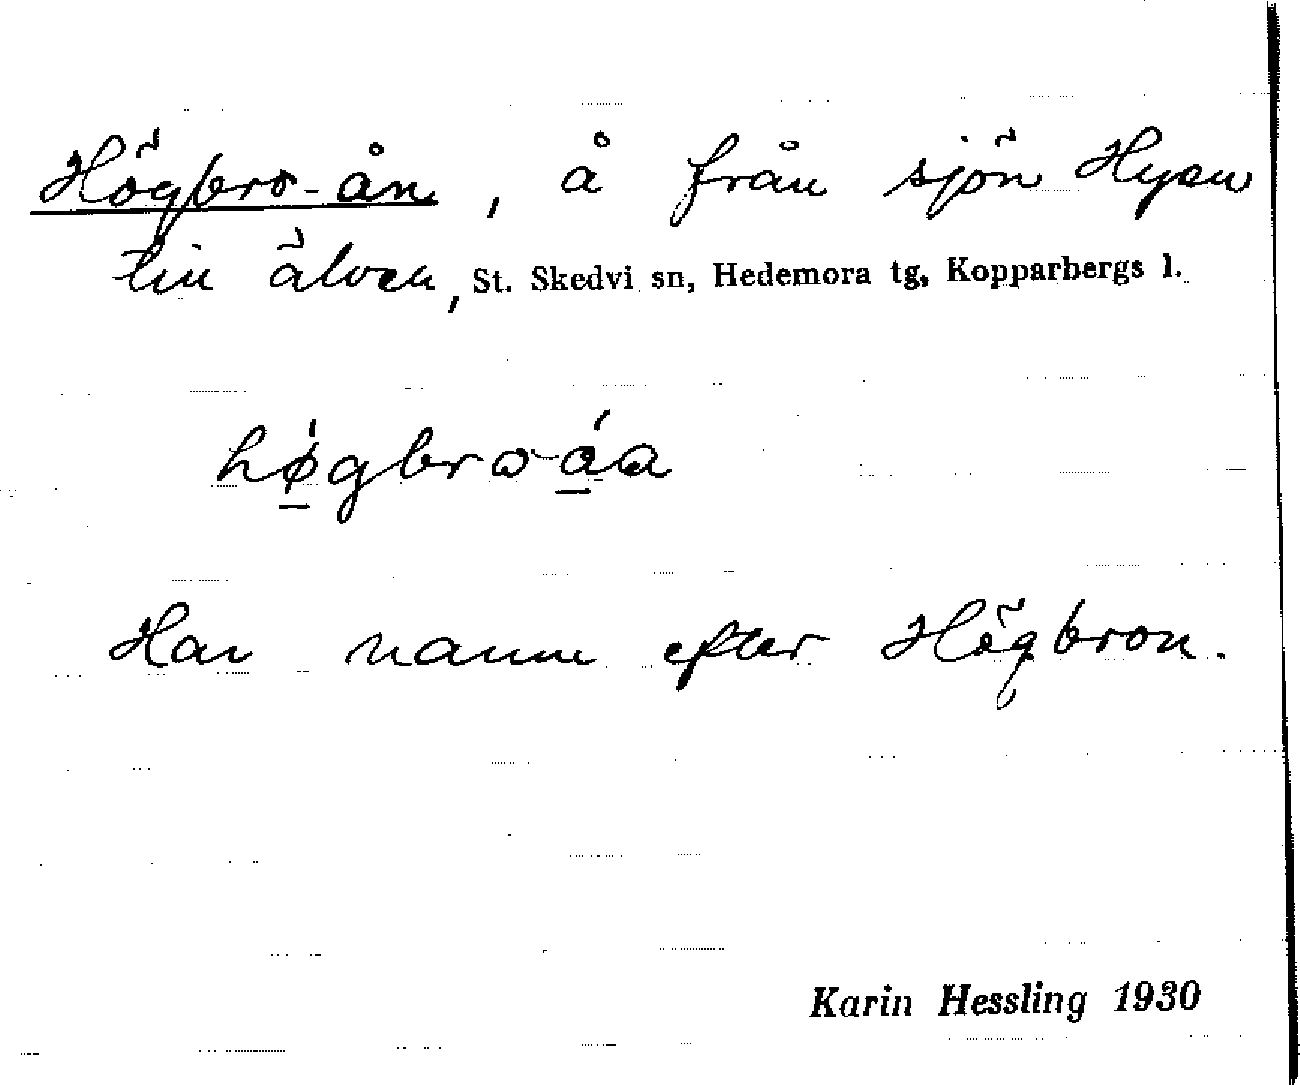 Högbro-ån, å från sjön Hyen
till älven, St. Skedvi sn, Hedemora tg, Kopparbergs l.
hǿ̱gbro-á̱a
Har namn efter Högbron.
Karin Hessling 1930